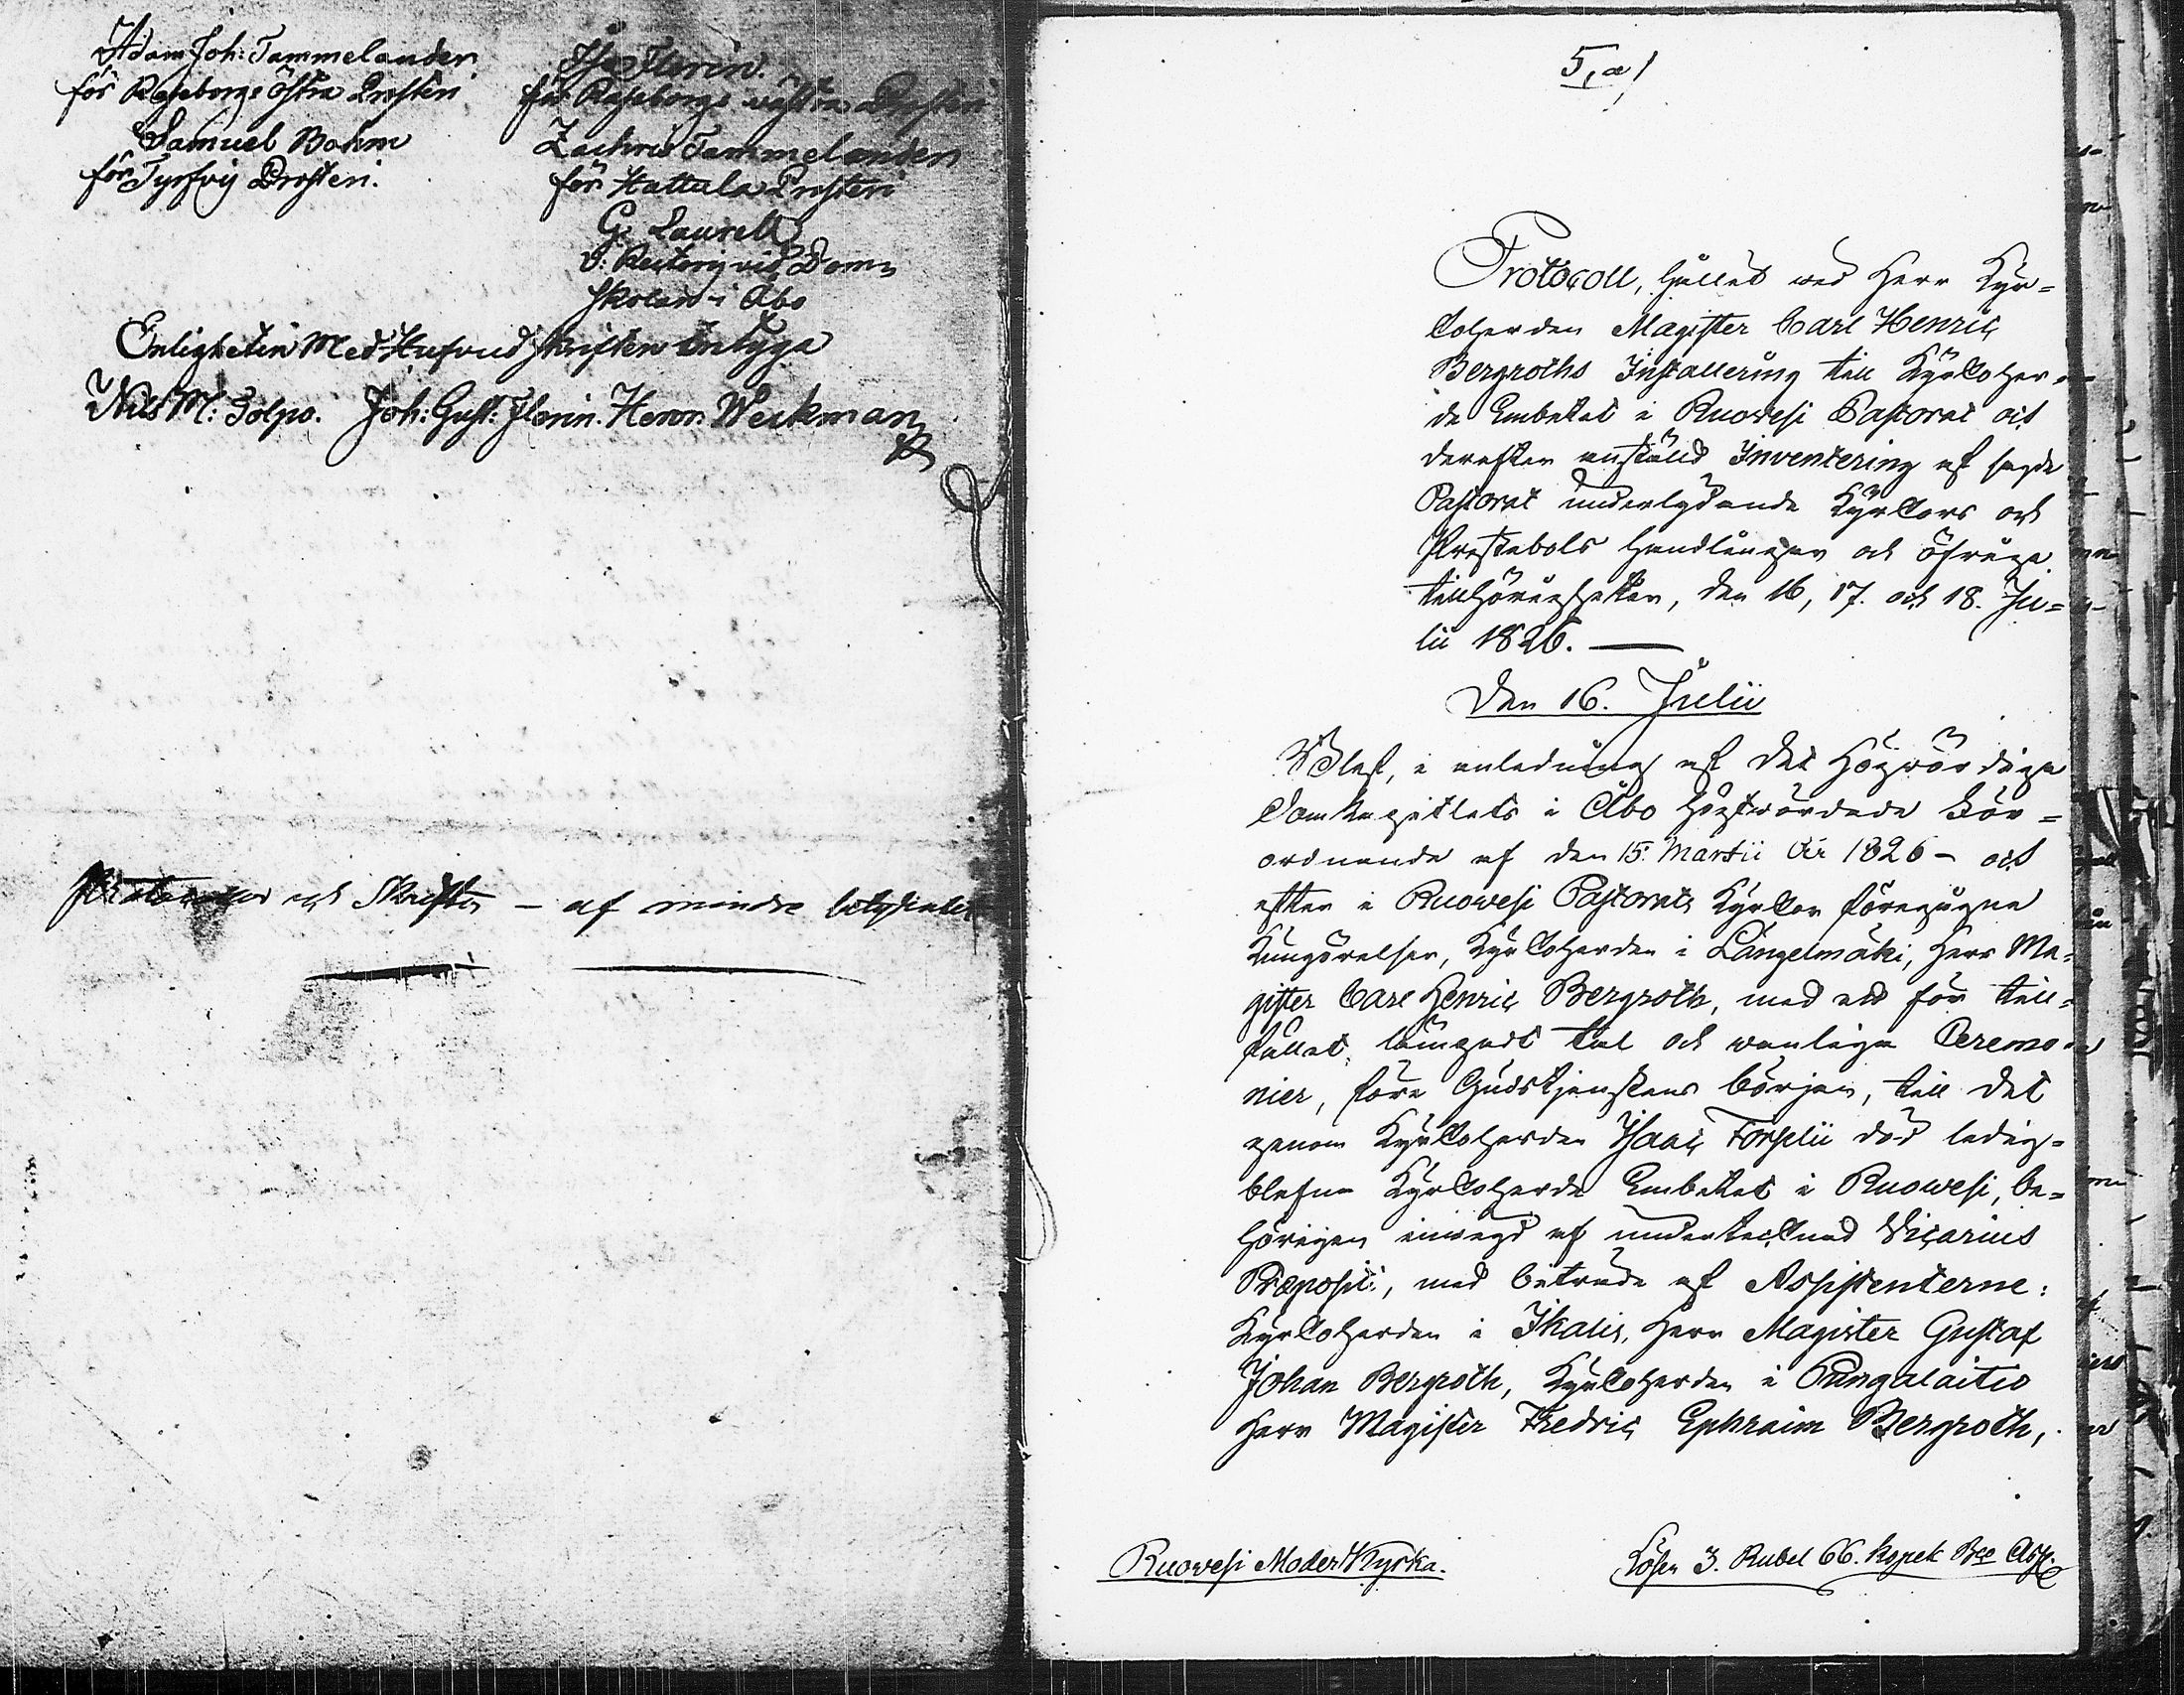 Adam Joh: Tammelander
för Raseborgs östra Prosteri
Samuel Bohm
för Tyrfvis Prosteri.
Florin.
för Raseborgs westra Prosteri
Zachris Tammelander
för Hattula Prosteri
G. Laurell
v. Rector vid Dom-
skolan i Åbo
Enligheten Med Hufvudskriften intyga
Nils M: Tolpo. Joh: Gust: Florin. Henr: Weckman
Protocoller och Skrifter – af mindre betydenhet
5, a/
Protocoll, hållet wid Herr Kyr=
koherden Magister Carl Henric
Bergroths Installering till Kyrkoher-
de Embetet i Ruovesi Pastorat och
derefter anstäld Inventering af sagde
Pastorat underlydande Kyrkors och
Prestebols handlingar och öfriga
tillhörigheter, den 16, 17. och 18. Ju=
lii 1826. —
Den 16. Julii
Blef, i anledning af det Högwördiga
Domkapitlets i Åbo högtwördade För=
ordnande af den 15. Martii År 1826 – och
efter i Ruowesi Pastorats Kyrkor föregågne
Kungörelser, Kyrkoherden i Längelmäki, Herr Ma=
gister Carl Henric Bergroth, med ett för till=
fället lämpadt tal och wanliga Ceremo-
nier, före Gudstjenstens början, till det
genom Kyrkoherden Isaac Forselii död ledig=
blefne Kyrkoherde Embetet i Ruowesi, be=
hörigen inwigd af undertecknad Vicarius
Præpositi, med biträde af Assistenterne:
Kyrkoherden i Ikalis, Herr Magister Gustaf
Johan Bergroth, Kyrkoherden i Pungalaitio
Herr Magister Fredric Ephraim Bergroth,
Ruovesi ModerKyrka.
Lösen 3. Rubel 66. Kopek Bco Ass.